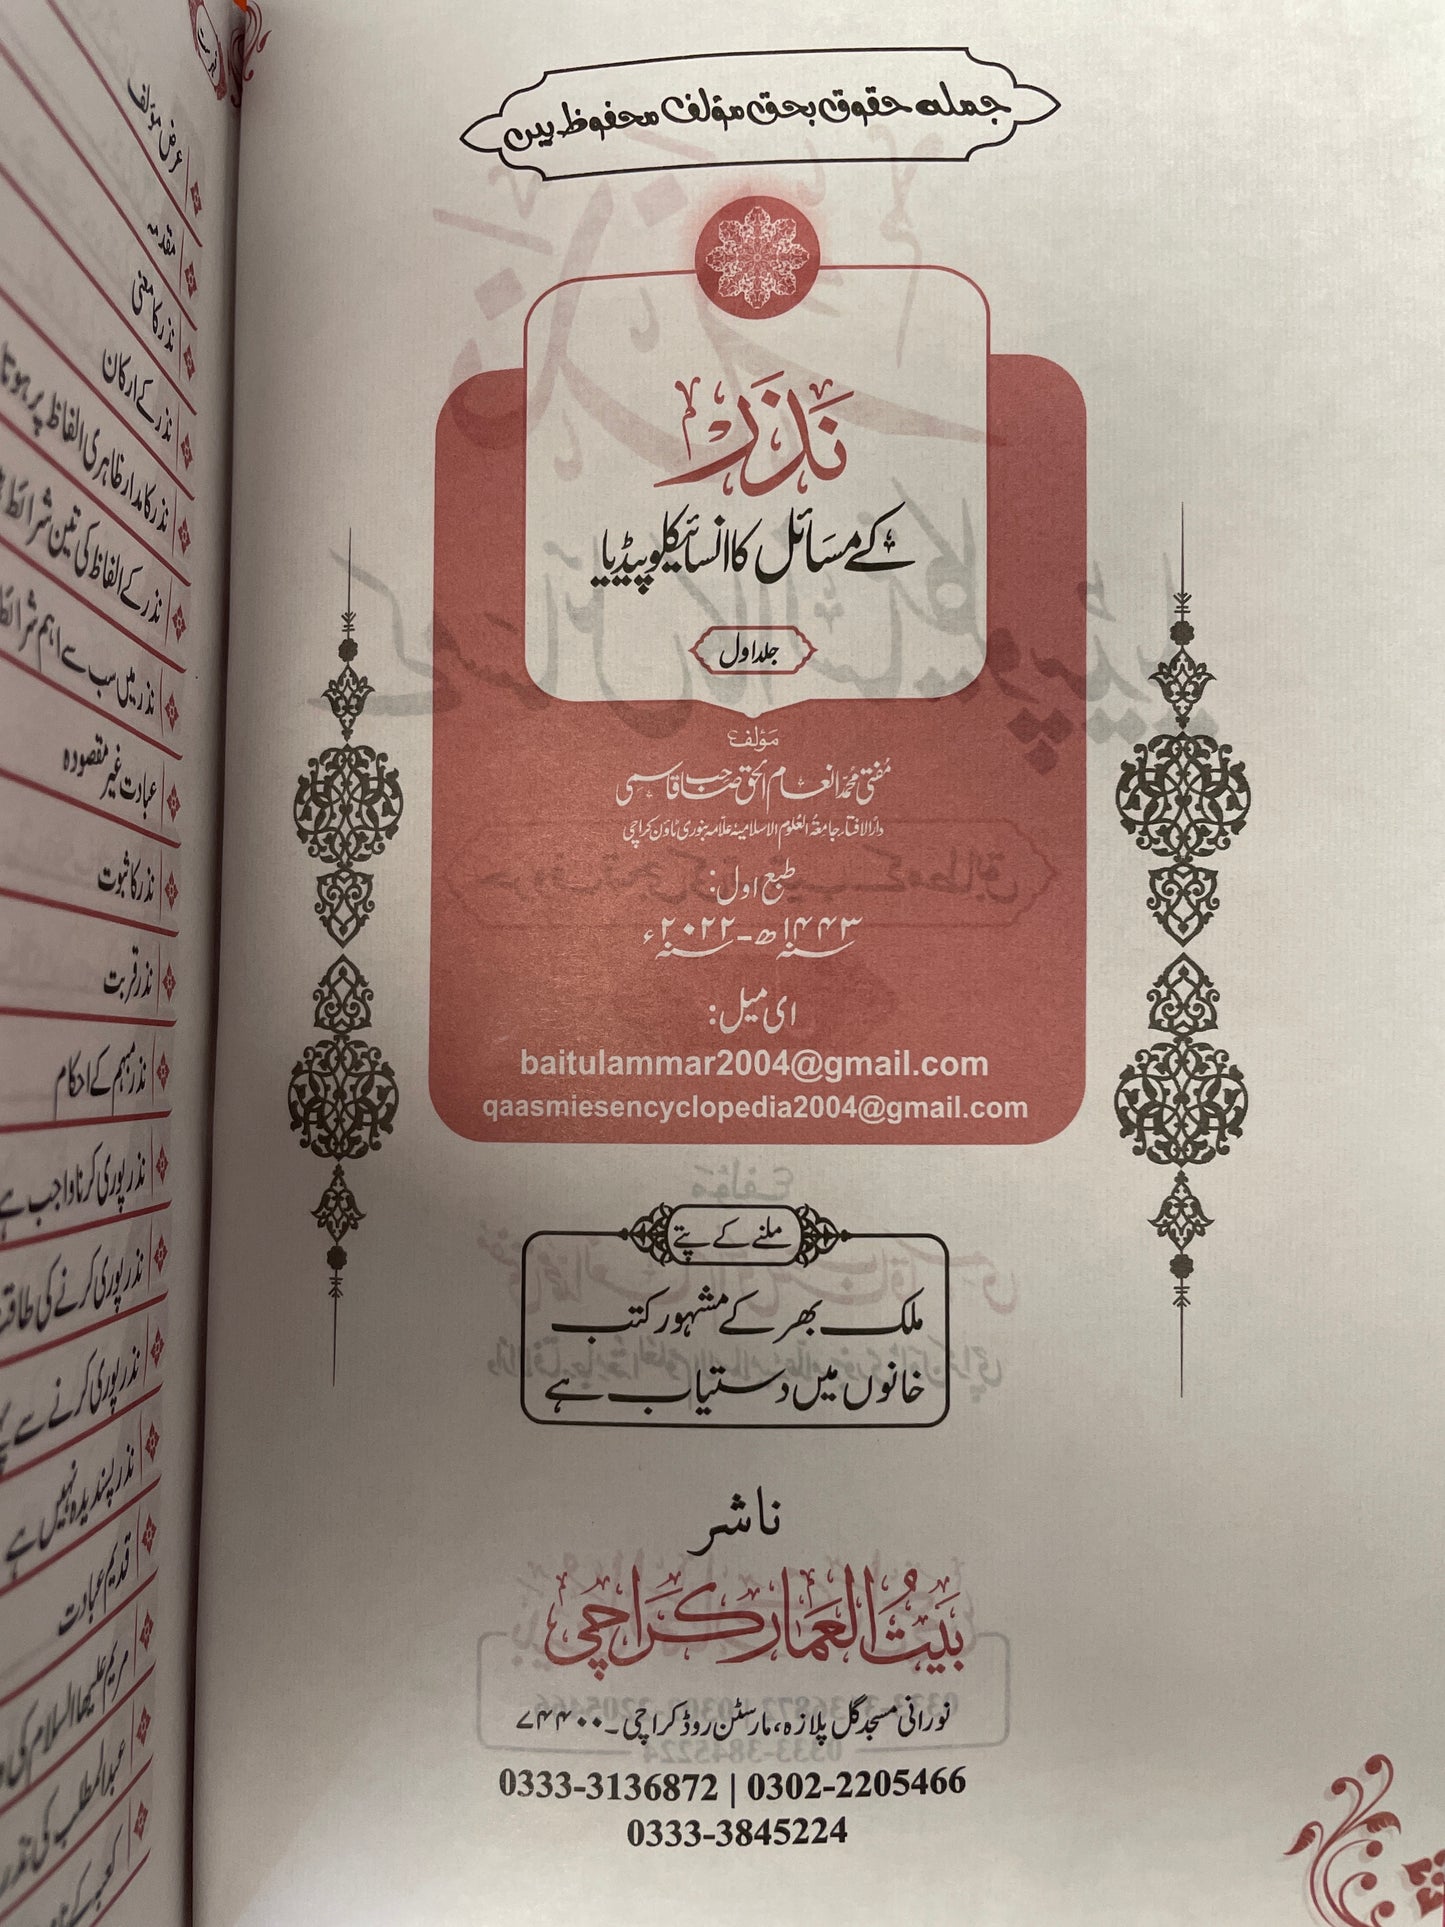 جملہ حقوق بحق مؤلف محفوظ ہیں
نذر
کے مسائل کا انسائیکلوپیڈیا
جلد اول
مؤلف
مفتی محمد انعام الحق صاحب قاسمی
دارالافتاء جامعۃ العلوم الاسلامیۃ علامہ بنوری ٹاؤن کراچی
طبع اول:
سنہ ۱۴۴۳ھ - سنہ ۲۰۲۲ء
ای میل:
baitulammar2004@gmail.com
qaasmiesencyclopedia2004@gmail.com
ملنے کے پتے
ملک بھر کے مشہور کتب
خانوں میں دستیاب ہے
ناشر
بیت العمار کراچی
نورانی مسجد گل پلازہ، مارسٹن روڈ کراچی۔ ۷۴۴۰۰
0333-3136872 | 0302-2205466
0333-3845224
فہرست
عرض مؤلف
مقدمہ
نذر کا معنی
نذر کے ارکان
نذر کا مدار ظاہری الفاظ پر ہوتا
نذر کے الفاظ کی تین شرائط
نذر میں سب سے اہم شرائط
عبادت غیر مقصودہ
نذر کا ثبوت
نذر قربت
نذر مبہم کے احکام
نذر پوری کرنا واجب ہے
نذر پوری کرنے کی طاقت
نذر پوری کرنے سے
نذر پسندیدہ نہیں ہے
قدیم عبادت
مریم علیہا السلام کی
عبدالمطلب کی نذر
کعبہ کے